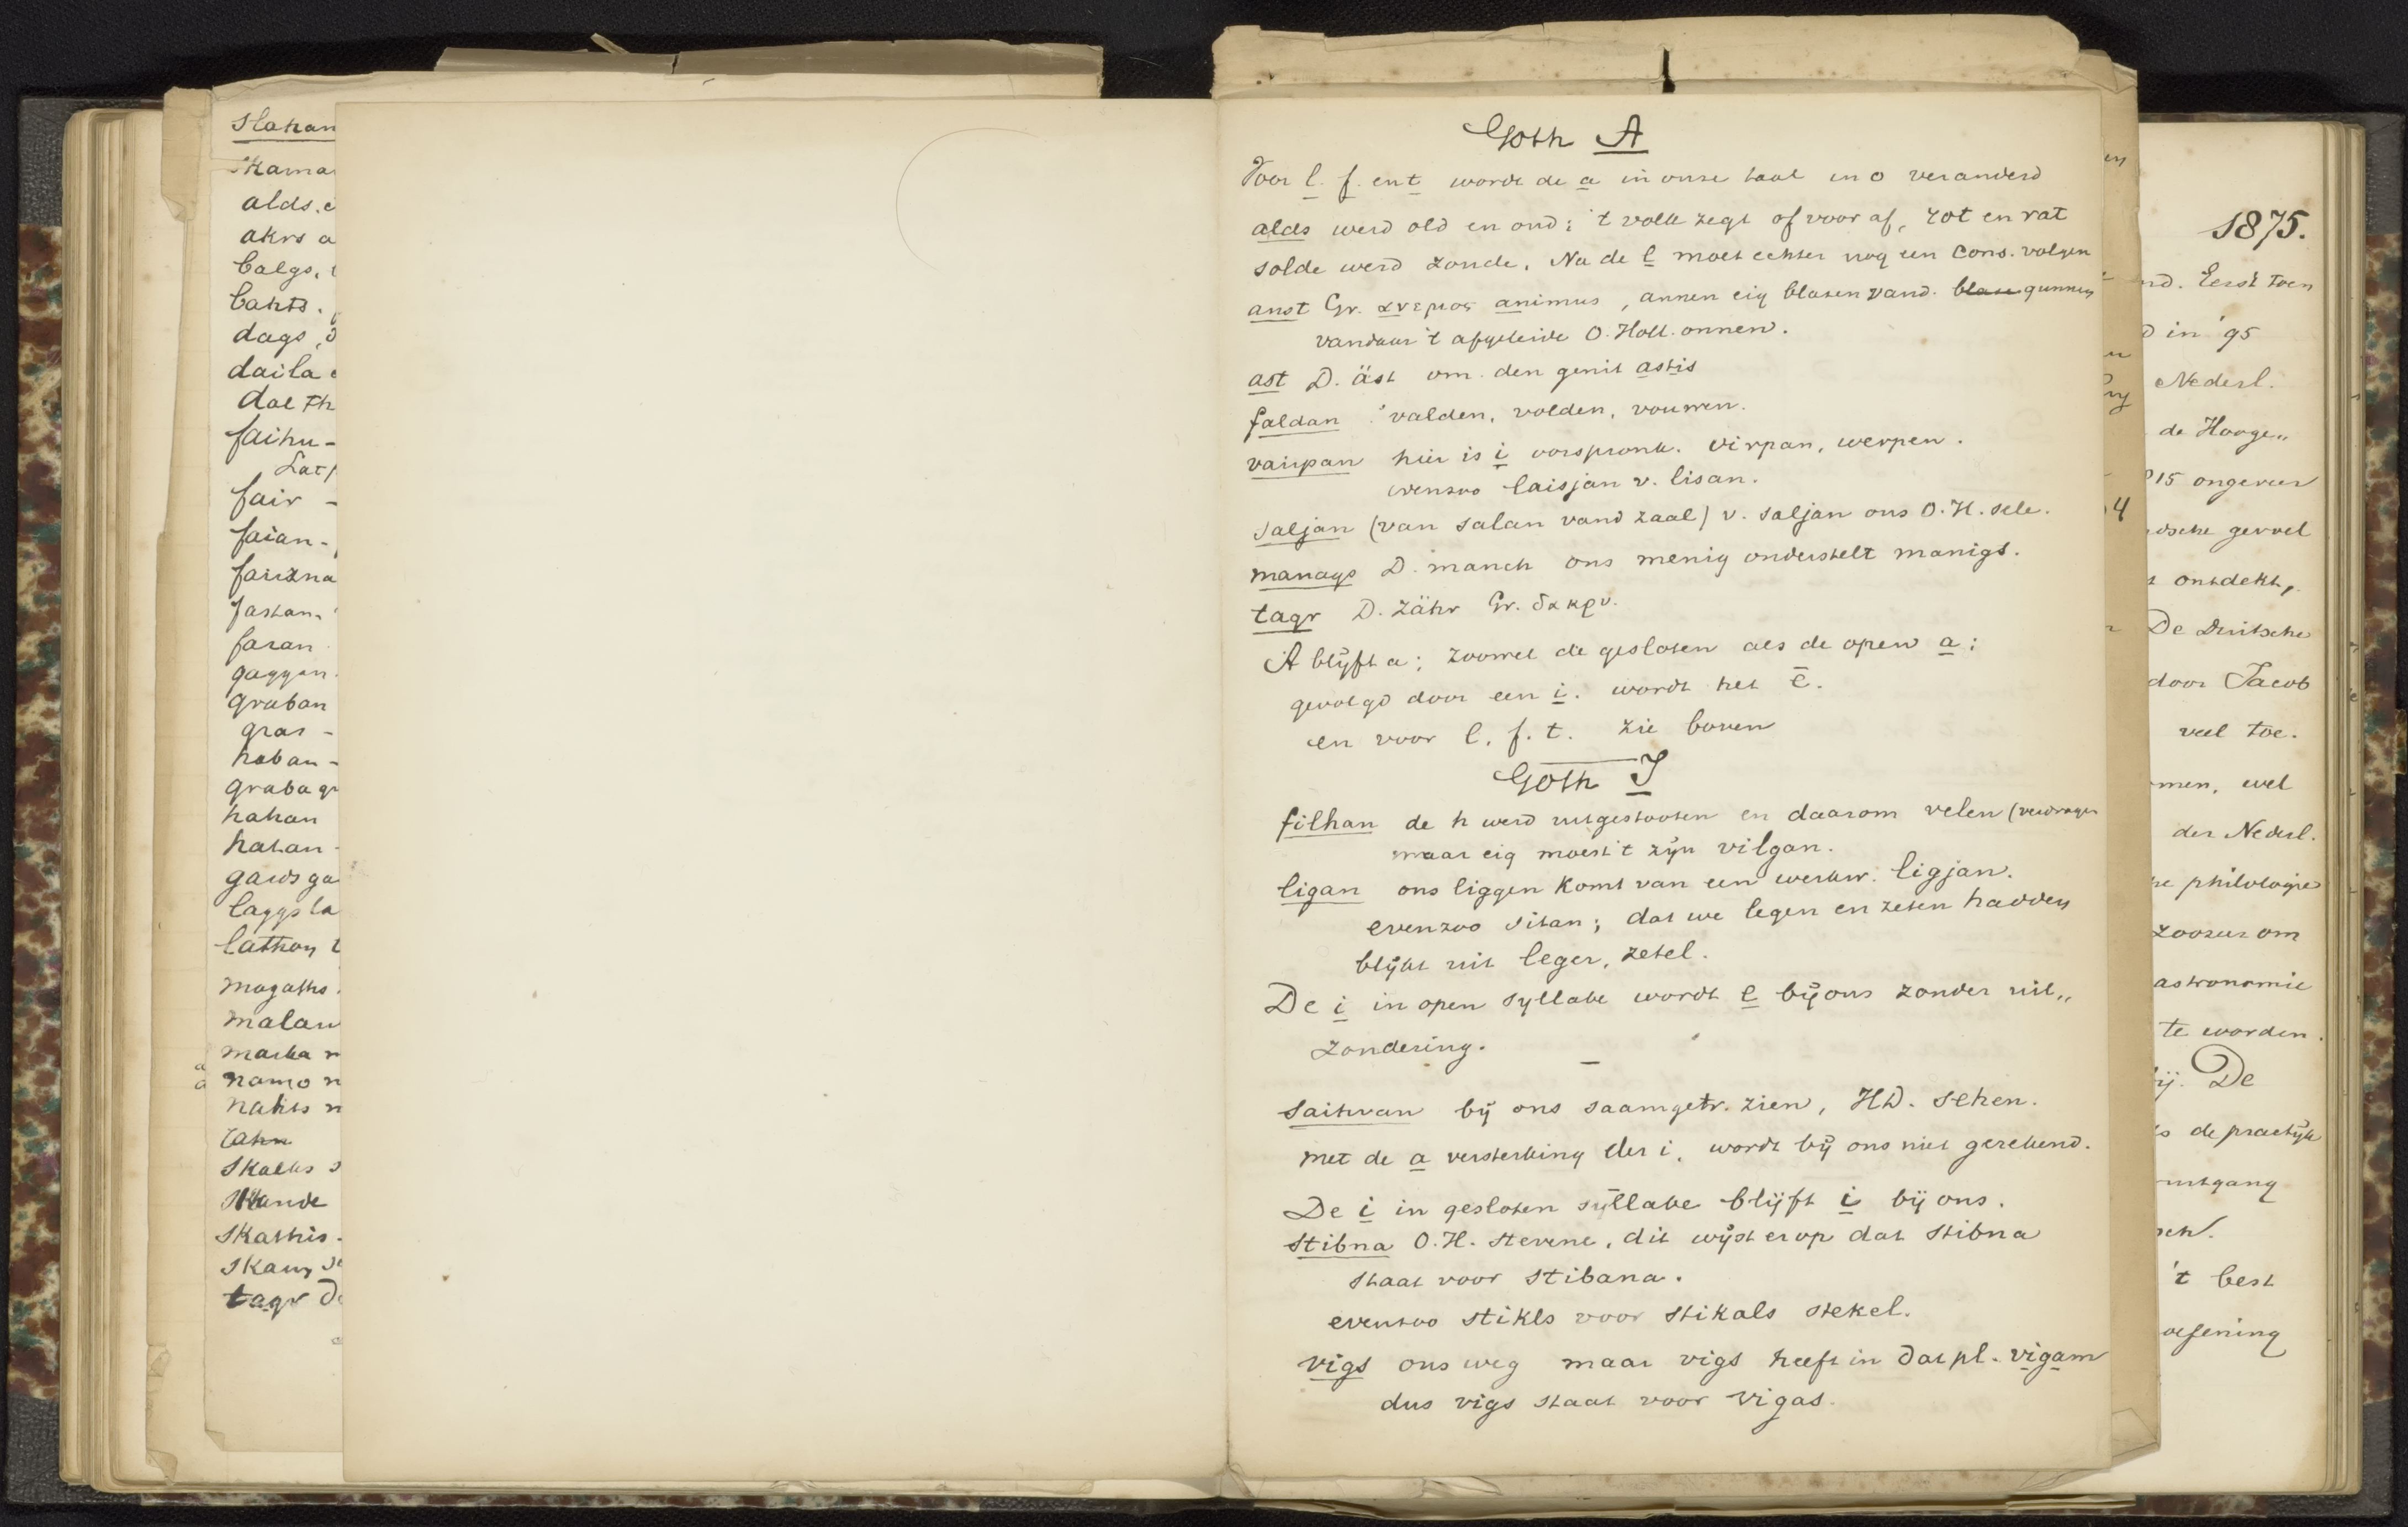 Slahan
skama
alds. e
akrs a
balgs.
bahts.
dags, d
daila
dal th
faihu -
Lat
fair -
faian -
fairzna
fastan.
faran
gaggan
graban
gras -
haban -
graba gr
hahan
hatan -
gards ga
laggs la
lathon t
magaths.
malan
marka m
namo n
nahts n
tahn
Skalks s
Skande
Skathis.
skaus
tagr
Goth A
Voor l. f. en t wordt de a in onze taal in o veranderd
alds werd old en oud; 't volk zegt of voor af, rot en rat
solde werd zoude. Na de l moet echter nog een cons. volgen
anst Gr. ανεμος animus, annen eig blazen vand. blase gunnen
vandaar 't afgeleide O. Holl. onnen.
ast D. äst om den genit astis
faldan valden, volden, vouwen.
vairpan hier is i oorspronk. virpan, werpen.
evenzoo laisjan v. lisan.
saljan (van salan vand zaal) v. saljan ons O. H. sele.
manags D. manch ons menig onderstelt manigs.
tagr D. zähr Gr. δακρυ.
A blijft a; zoowel de gesloten als de open a;
gevolgd door een i. wordt het ē.
en voor l. f. t. zie boven
Goth I
filhan de h werd uitgestooten en daarom velen (verdragen
maar eig moest 't zijn vilgan.
ligan ons liggen komt van een werkw. ligjan.
evenzoo sitan; dat we legen en zeten hadden
blijkt uit leger, zetel.
De i in open syllabe wordt e bij ons zonder uit„
zondering.
saihvan bij ons saamgetr. zien, HD. sehen.
met de a versterking der i. wordt bij ons niet gerekend.
De i in gesloten syllabe blijft i bij ons.
stibna O. H. stevene, dit wijst erop dat stibna
staat voor stibana.
evenzoo stikls voor stikals stekel.
vigs ons weg maar vigs heeft in dat pl. vigam
dus vigs staat voor vigas.
1875.
nd. Eerst toen
d in '95
Nederl.
de Hooge„
15 ongeveer
dsche gevoel
ontdekt,
De Duitsche
door Jacob
veel toe.
men, wel
der Nederl.
he philologie
zoozeer om
astronomie
te worden.
ij. De
s de practijk
uitgang
sch.
't best
oefening